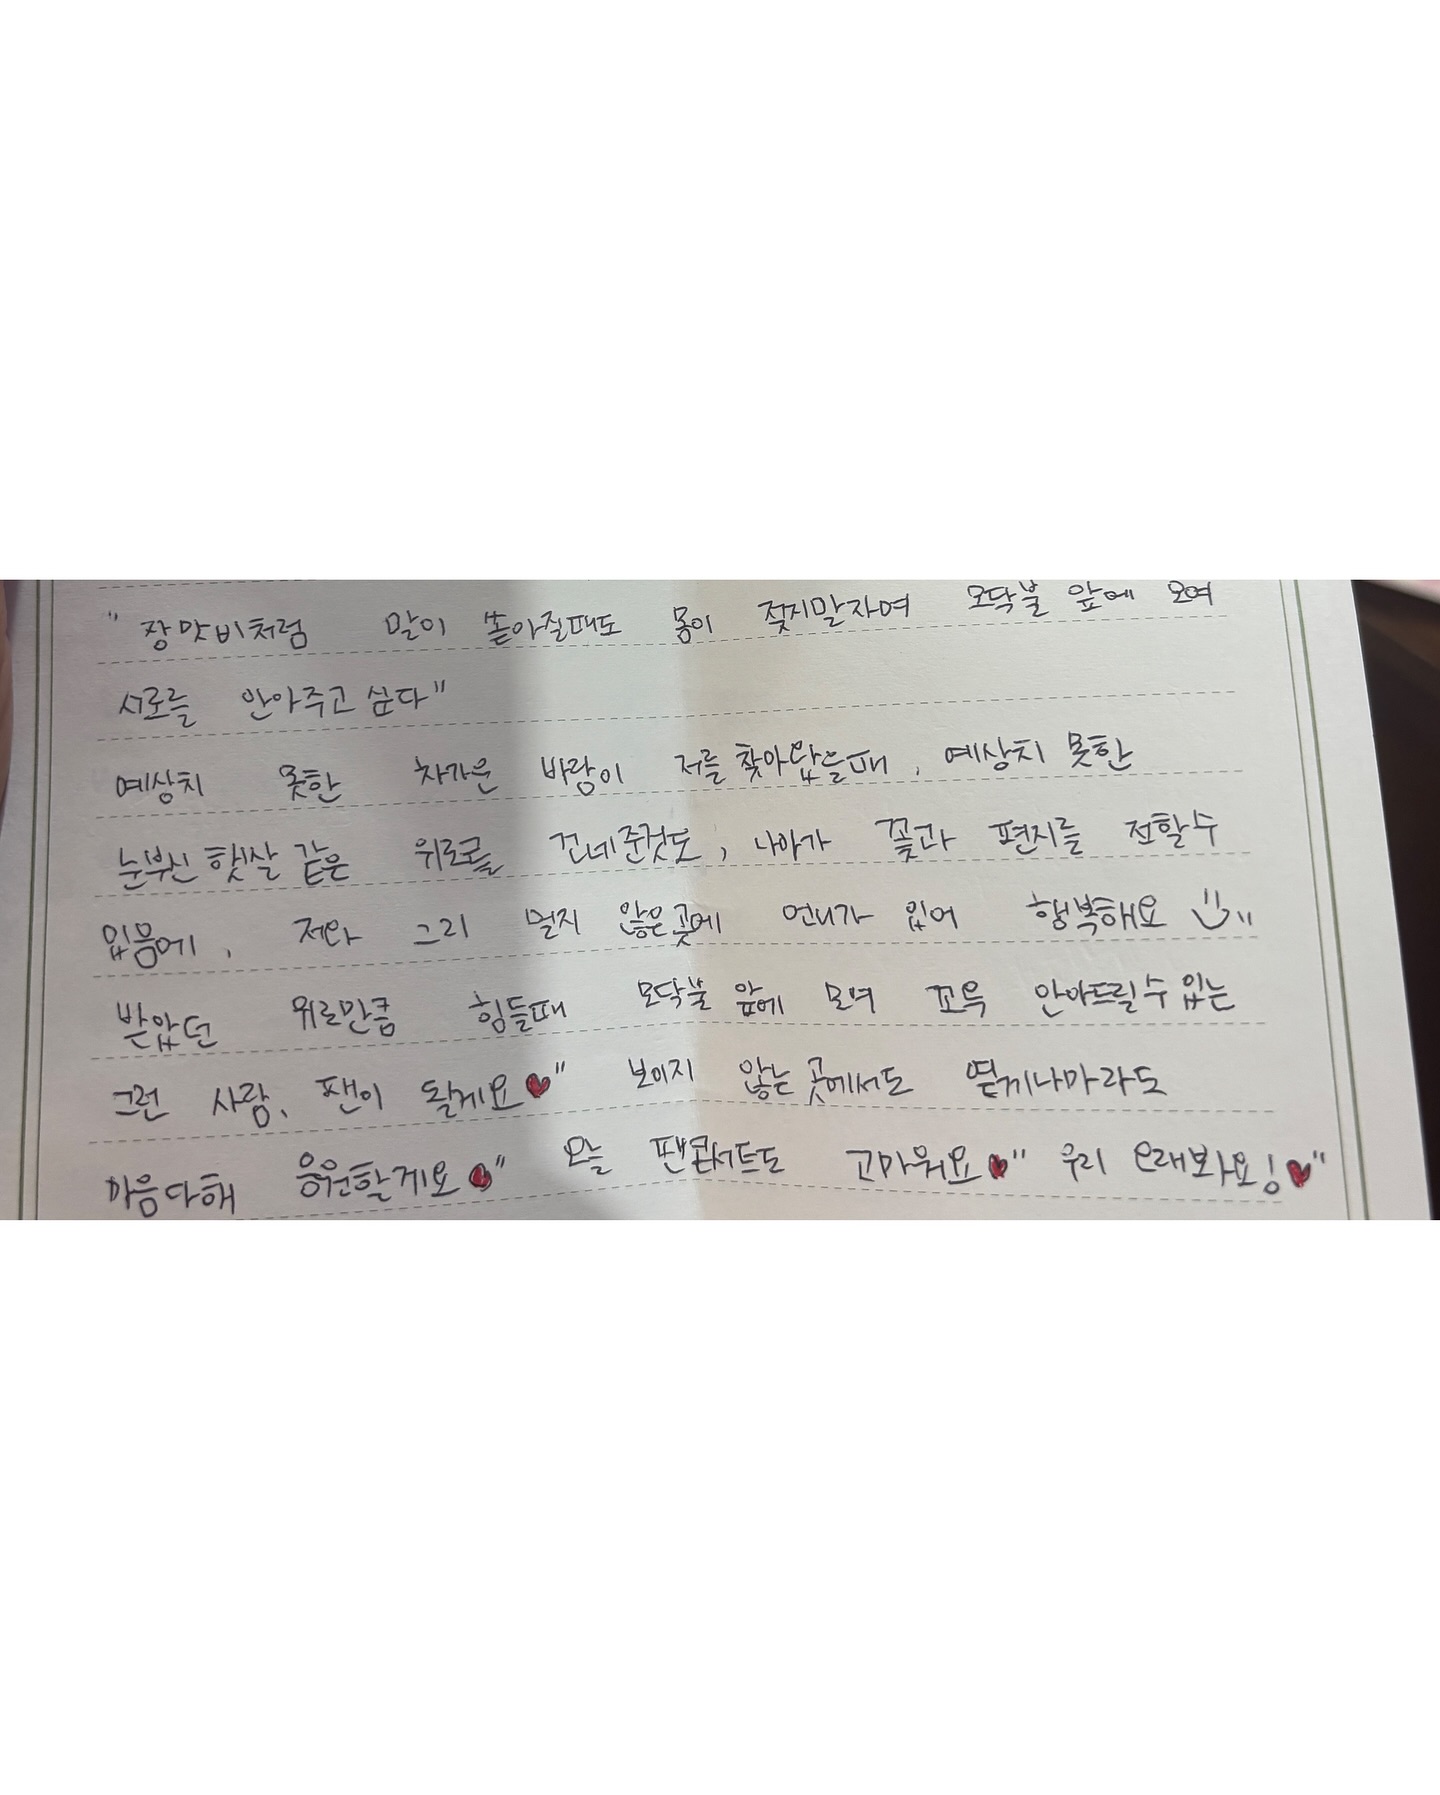 " 장맛비처럼 말이 쏟아질때도 몸이 젖지말자며 모닥불 앞에 모여
서로를 안아주고 싶다"
예상치 못한 차가운 바람이 저를 찾아왔을때, 예상치 못한
눈부신 햇살 같은 위로를 건네준것도, 나아가 꽃과 편지를 전할수
있음에, 저와 그리 멀지 않은 곳에 언니가 있어 행복해요
받았던 위로만큼 힘들때 모닥불 앞에 모여 꼬옥 안아드릴수 있는
그런 사람, 팬이 될게요♥" 보이지 않는 곳에서도 옅게나마라도
마음다해 응원할게요♥" 오늘 팬콘서트도 고마워요♥" 우리 오래봐요!♥"